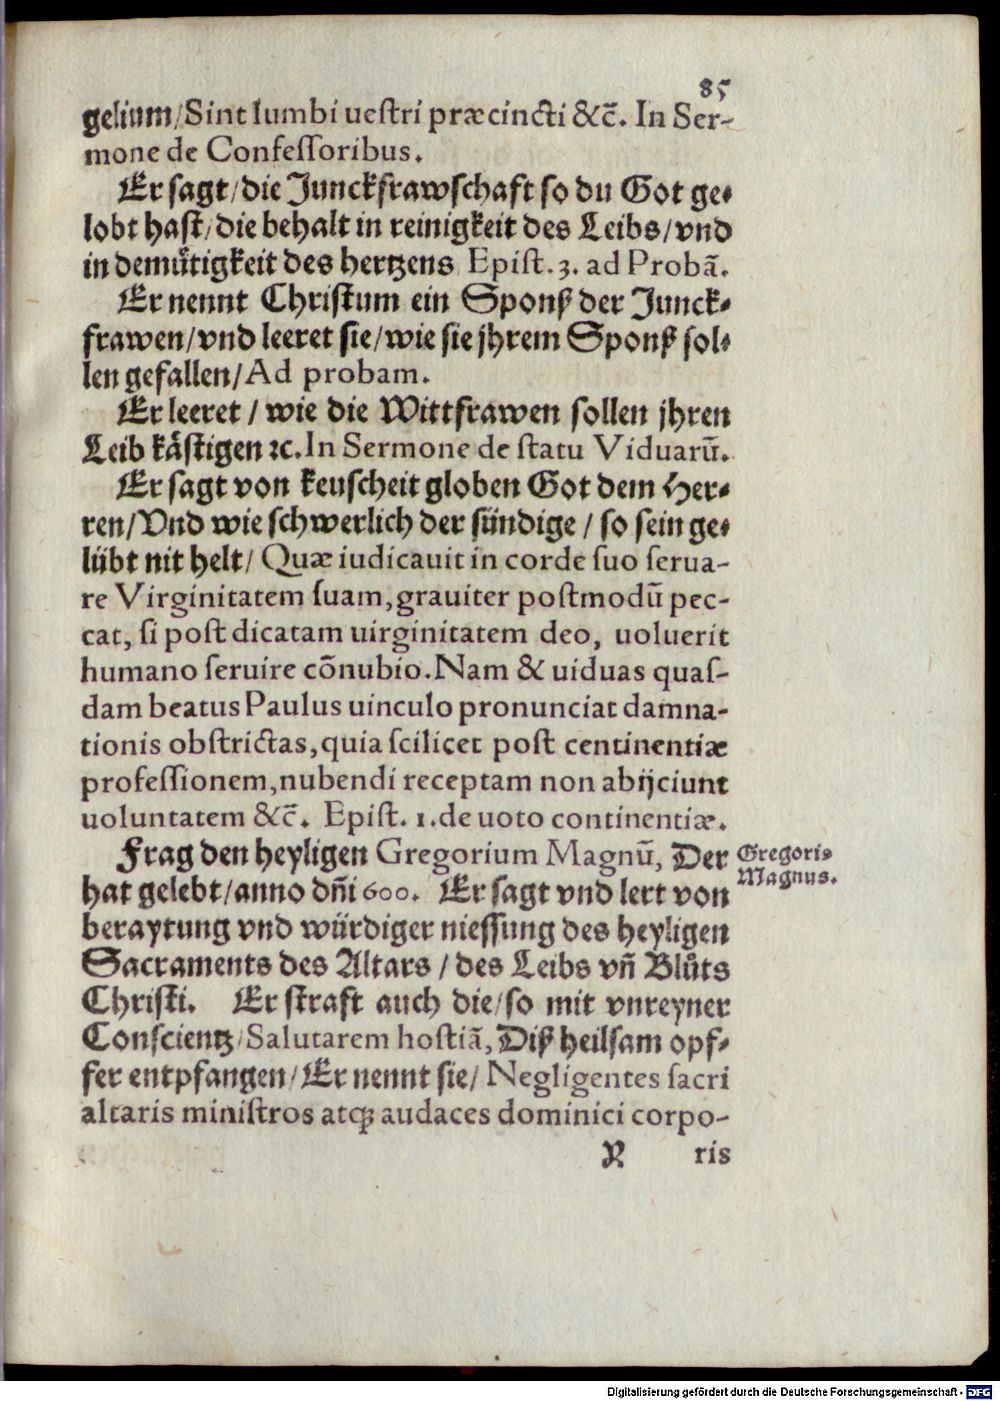 85
gelium/Sint lumbi uestri præcincti &c̃. In Ser-
mone de Confeſſoribus.
Er sagt/die Junckfrawschaft so du Got ge-
lobt hast/die behalt in reinigkeit des Leibs/vnd
in demuͤtigkeit des hertzens Epiſt. 3. ad Probã.
Er nennt Christum ein Sponß der Junck-
frawen/vnd leeret sie/wie sie jhrem Sponß sol-
len gefallen/Ad probam.
Er leeret / wie die Wittfrawen sollen jhren
Leib kaͤstigen ⁊c. In Sermone de ſtatu Viduarũ.
Er sagt von keuscheit globen Got dem Her-
ren/Vnd wie schwerlich der sündige / so sein ge-
lübt nit helt/ Quæ iudicauit in corde ſuo ſerua-
re Virginitatem ſuam, grauiter poſtmodũ pec-
cat, ſi poſt dicatam uirginitatem deo, uoluerit
humano ſeruire cõnubio. Nam & uiduas quaſ-
dam beatus Paulus uinculo pronunciat damna-
tionis obſtrictas, quia ſcilicet poſt centinentiæ
profeſſionem, nubendi receptam non abijciunt
uoluntatem &c̃. Epiſt. 1. de uoto continentiæ.
Frag den heyligen Gregorium Magnũ, Der
Gregori-
Magnus.
hat gelebt/anno dñi 600. Er sagt vnd lert von
beraytung vnd würdiger niessung des heyligen
Sacraments des Altars / des Leibs vñ Bluͦts
Christi. Er straft auch die/so mit vnreyner
Conscientz/Salutarem hoſtiã, Diß heilsam opf-
fer entpfangen/Er nennt sie/ Negligentes ſacri
altaris miniſtros atqꝫ audaces dominici corpo-
Y ris
Digitalisierung gefördert durch die Deutsche Forschungsgemeinschaft - DFG